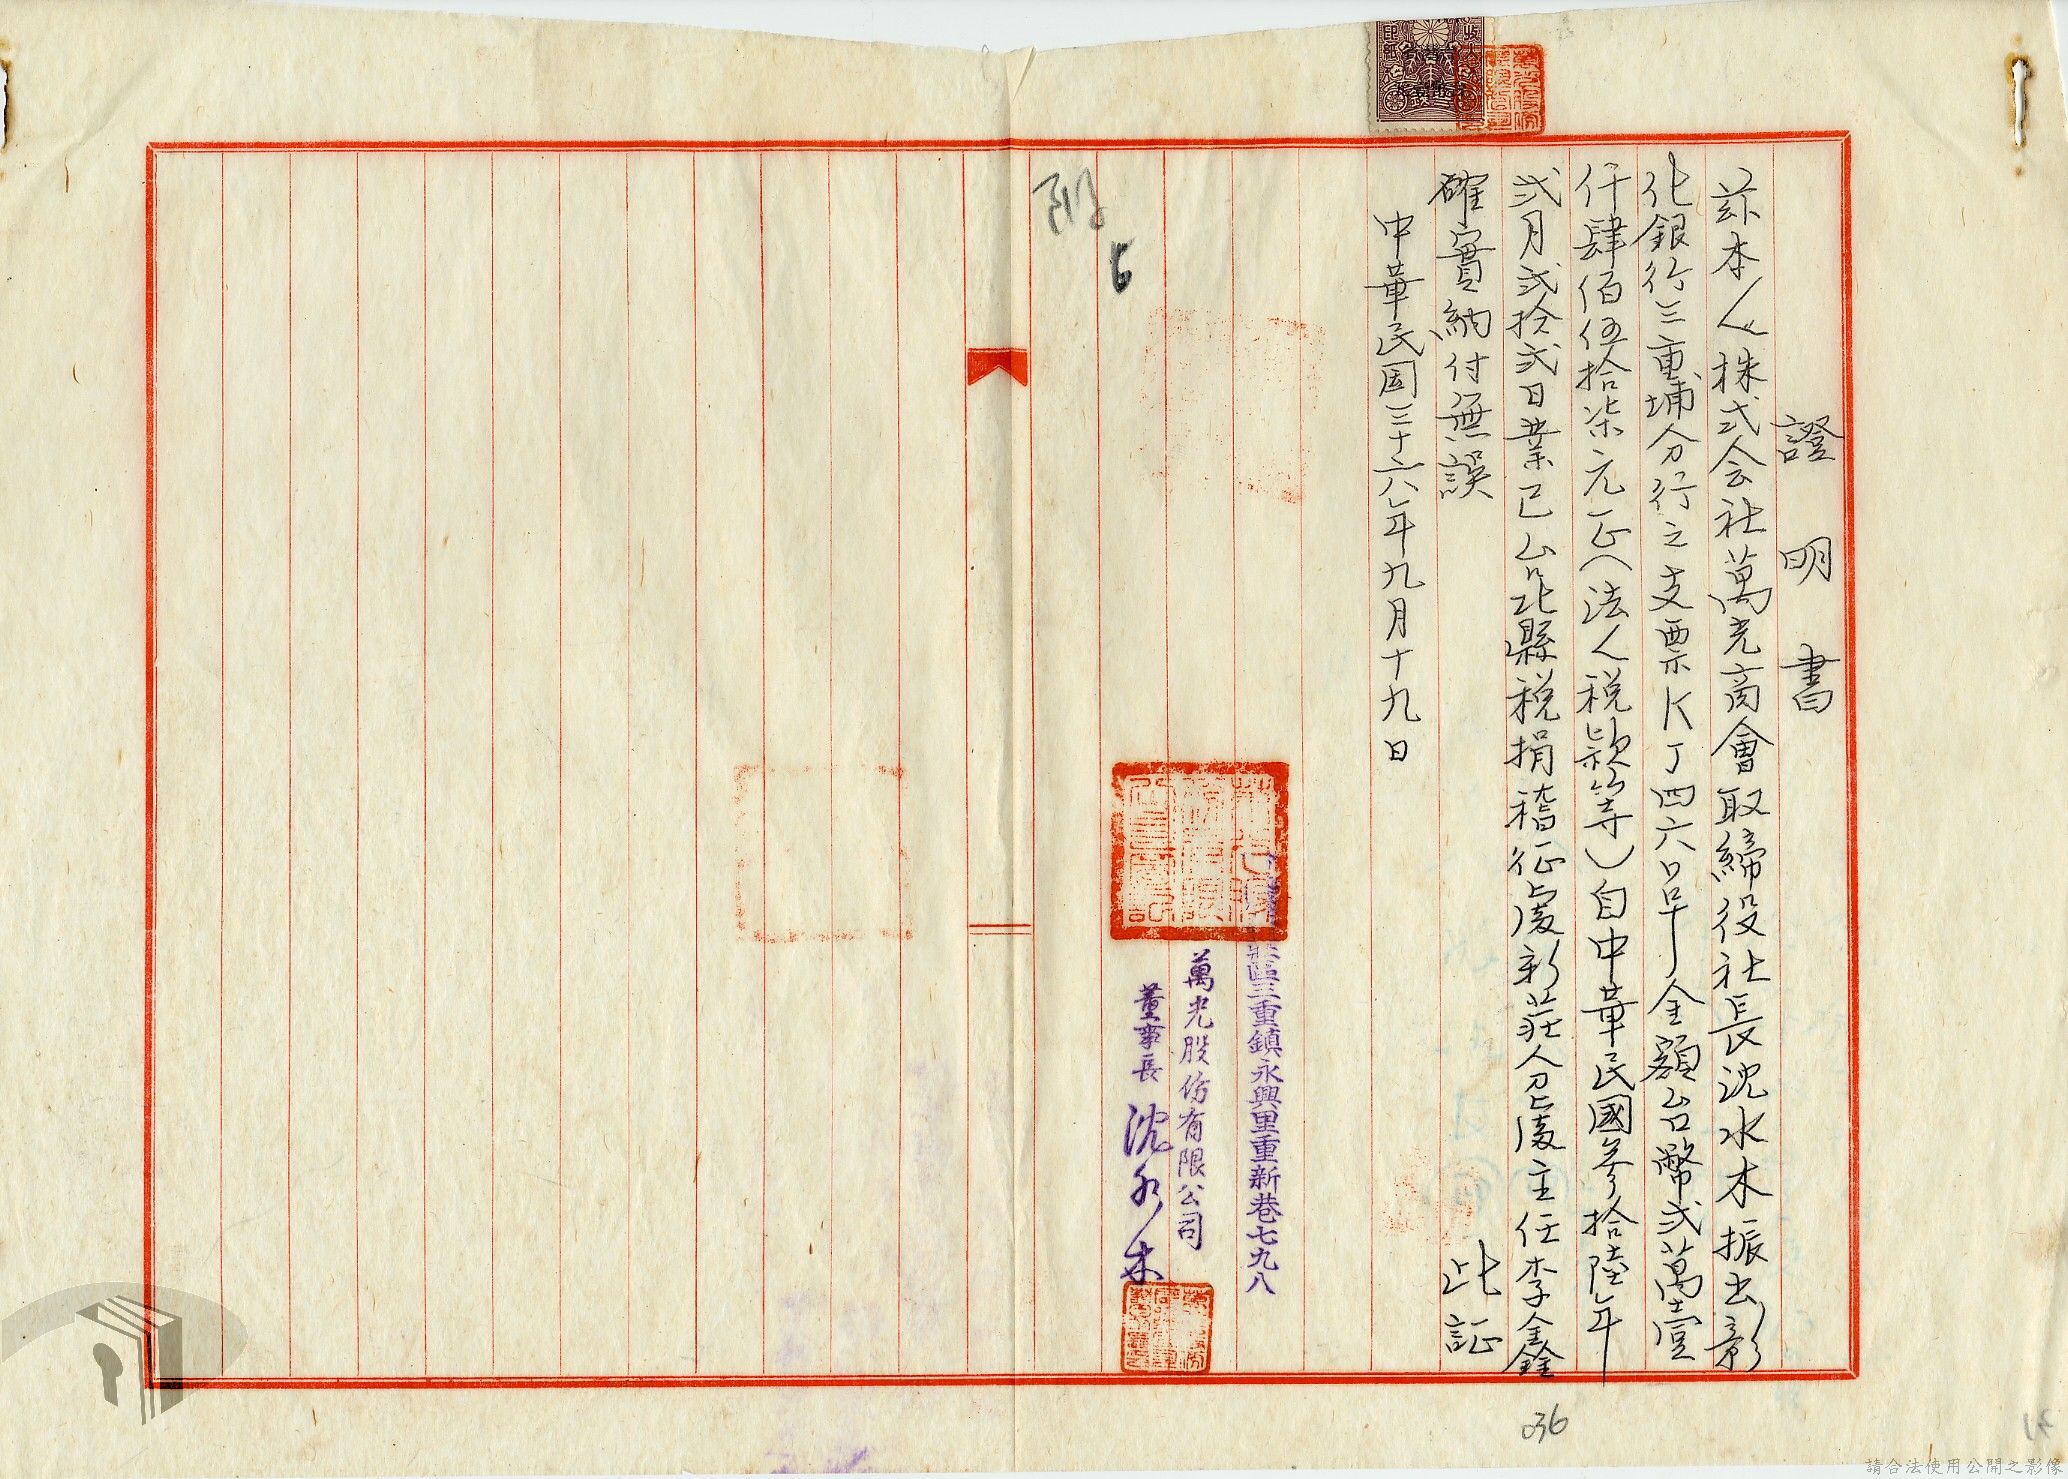 證明書
茲本人株式会社萬光商會取締役社長沈水木振出彰
化銀行三重埔分行之支票KJ四六号金額台幣弍萬壹
仟肆佰伍拾柒元正(法人稅款等)自中華民國參拾陸年
弍月弍拾弍日業已台北縣稅捐稽征處新莊分處主任李金鎗
確實納付無誤
此証
中華民国三十六年九月十九日
莊區三重鎮永興里重新巷七九八
萬光股份有限公司
董事長 沈水木
附
6
036
請合法使用公開之影像